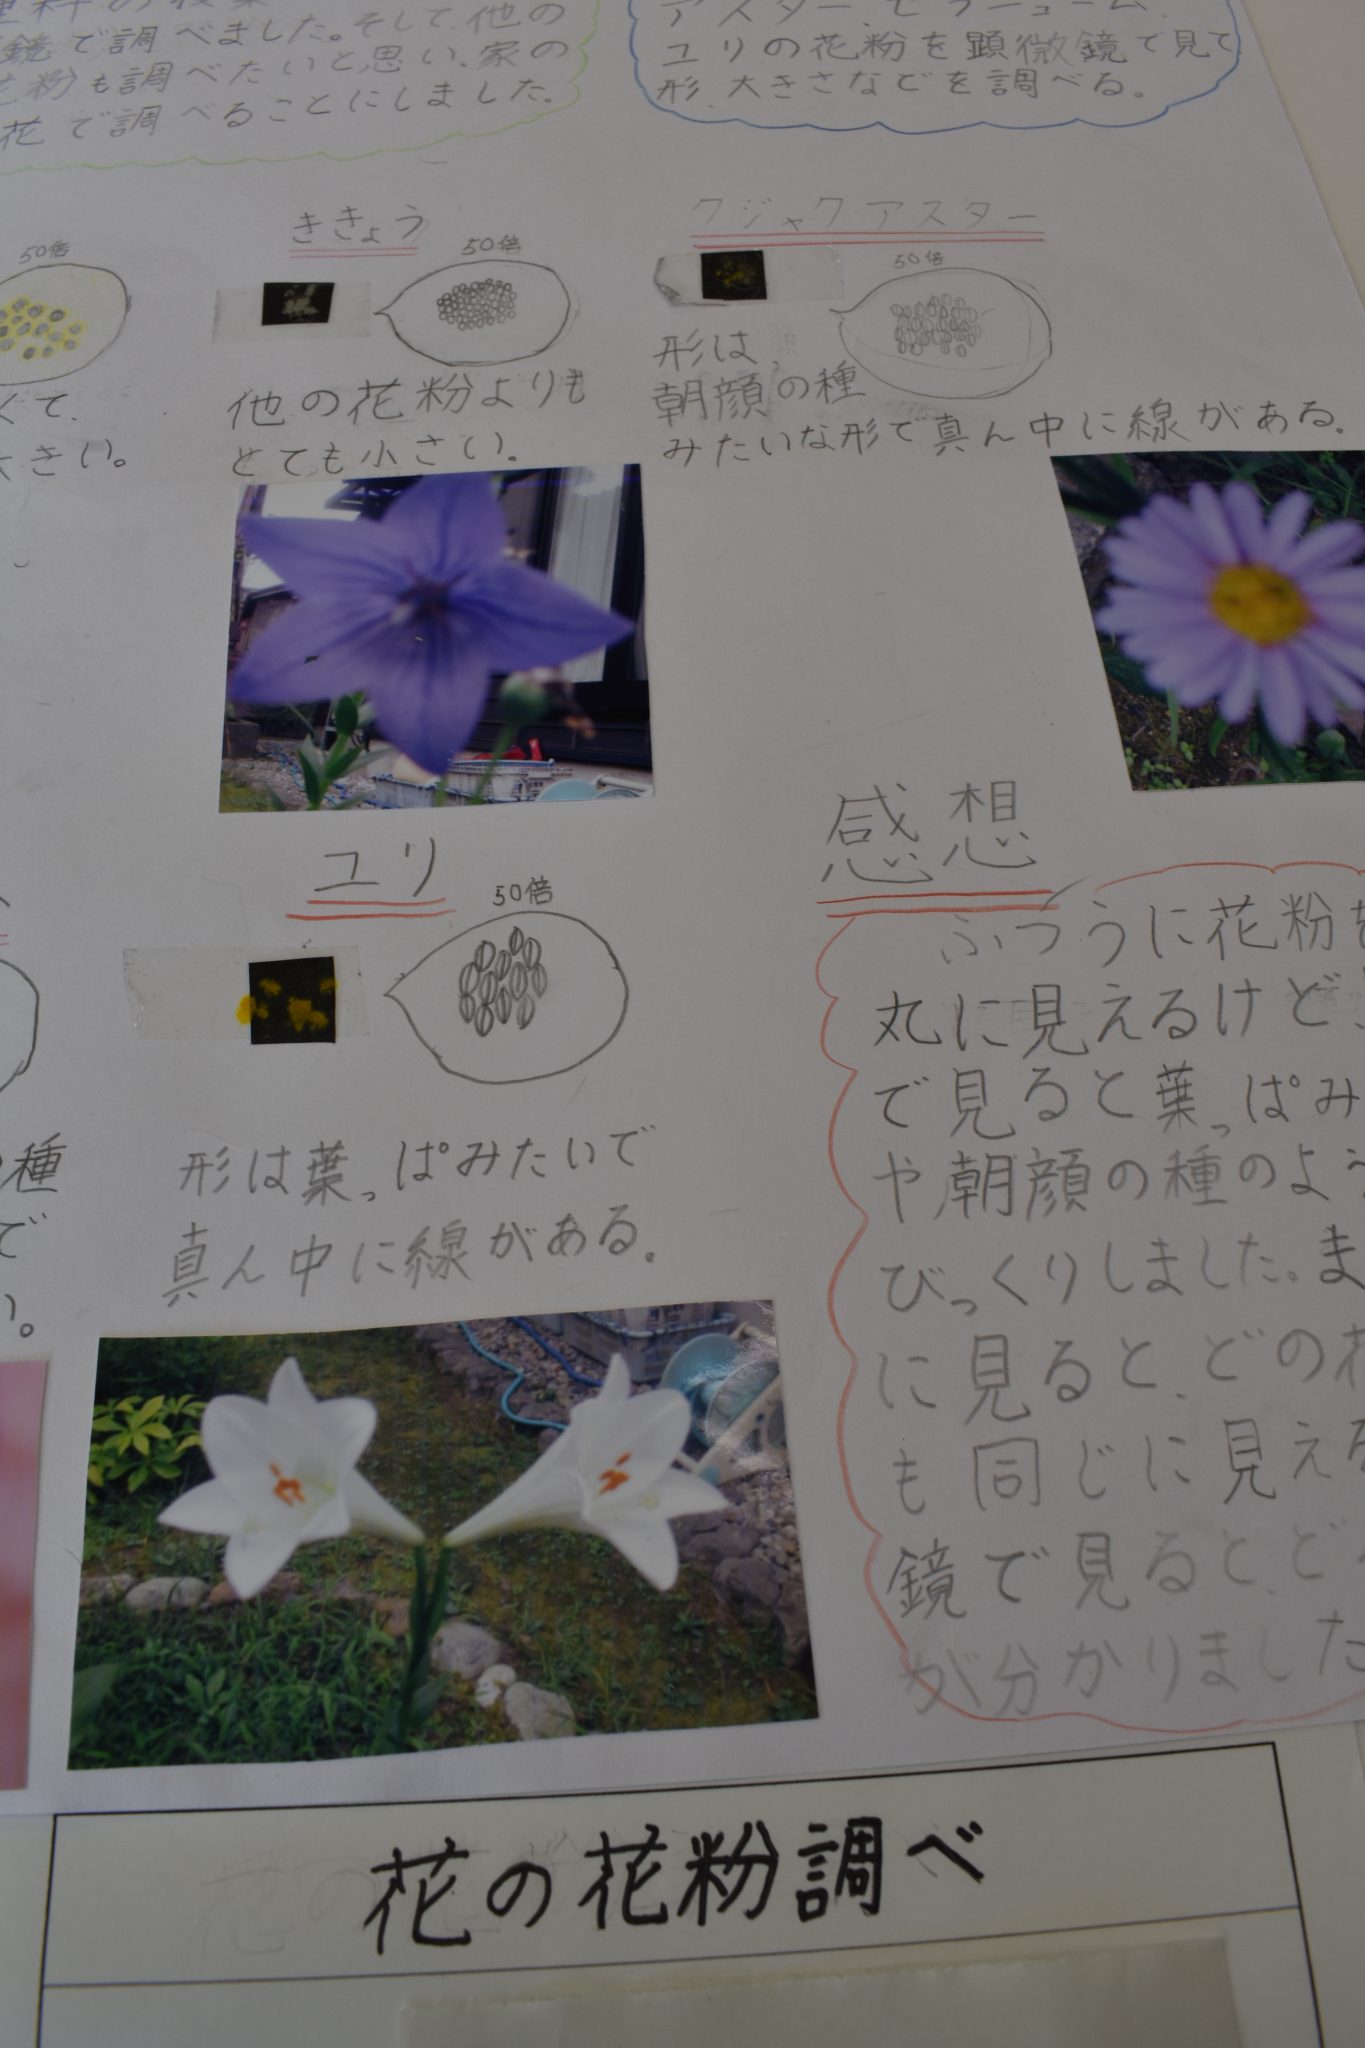 鏡で調べました。そして、他の
花粉も調べたいと思い、家の
花で調べることにしました。
アスター、ゼラニューム、
ユリの花粉を顕微鏡で見て
形、大きさなどを調べる。
50倍
くて、
大きい。
ききょう
50倍
他の花粉よりも
とても小さい。
クジャクアスター
50倍
形は、
朝顔の種
みたいな形で真ん中に線がある。
種
で
い。
ユリ
50倍
形は葉っぱみたいで
真ん中に線がある。
感想
ふつうに花粉を
丸に見えるけど、
で見ると葉っぱみ
や朝顔の種のよう
びっくりしました。ま
に見ると、どの花
も同じに見える
鏡で見ると、ど
が分かりました
花の花粉調べ